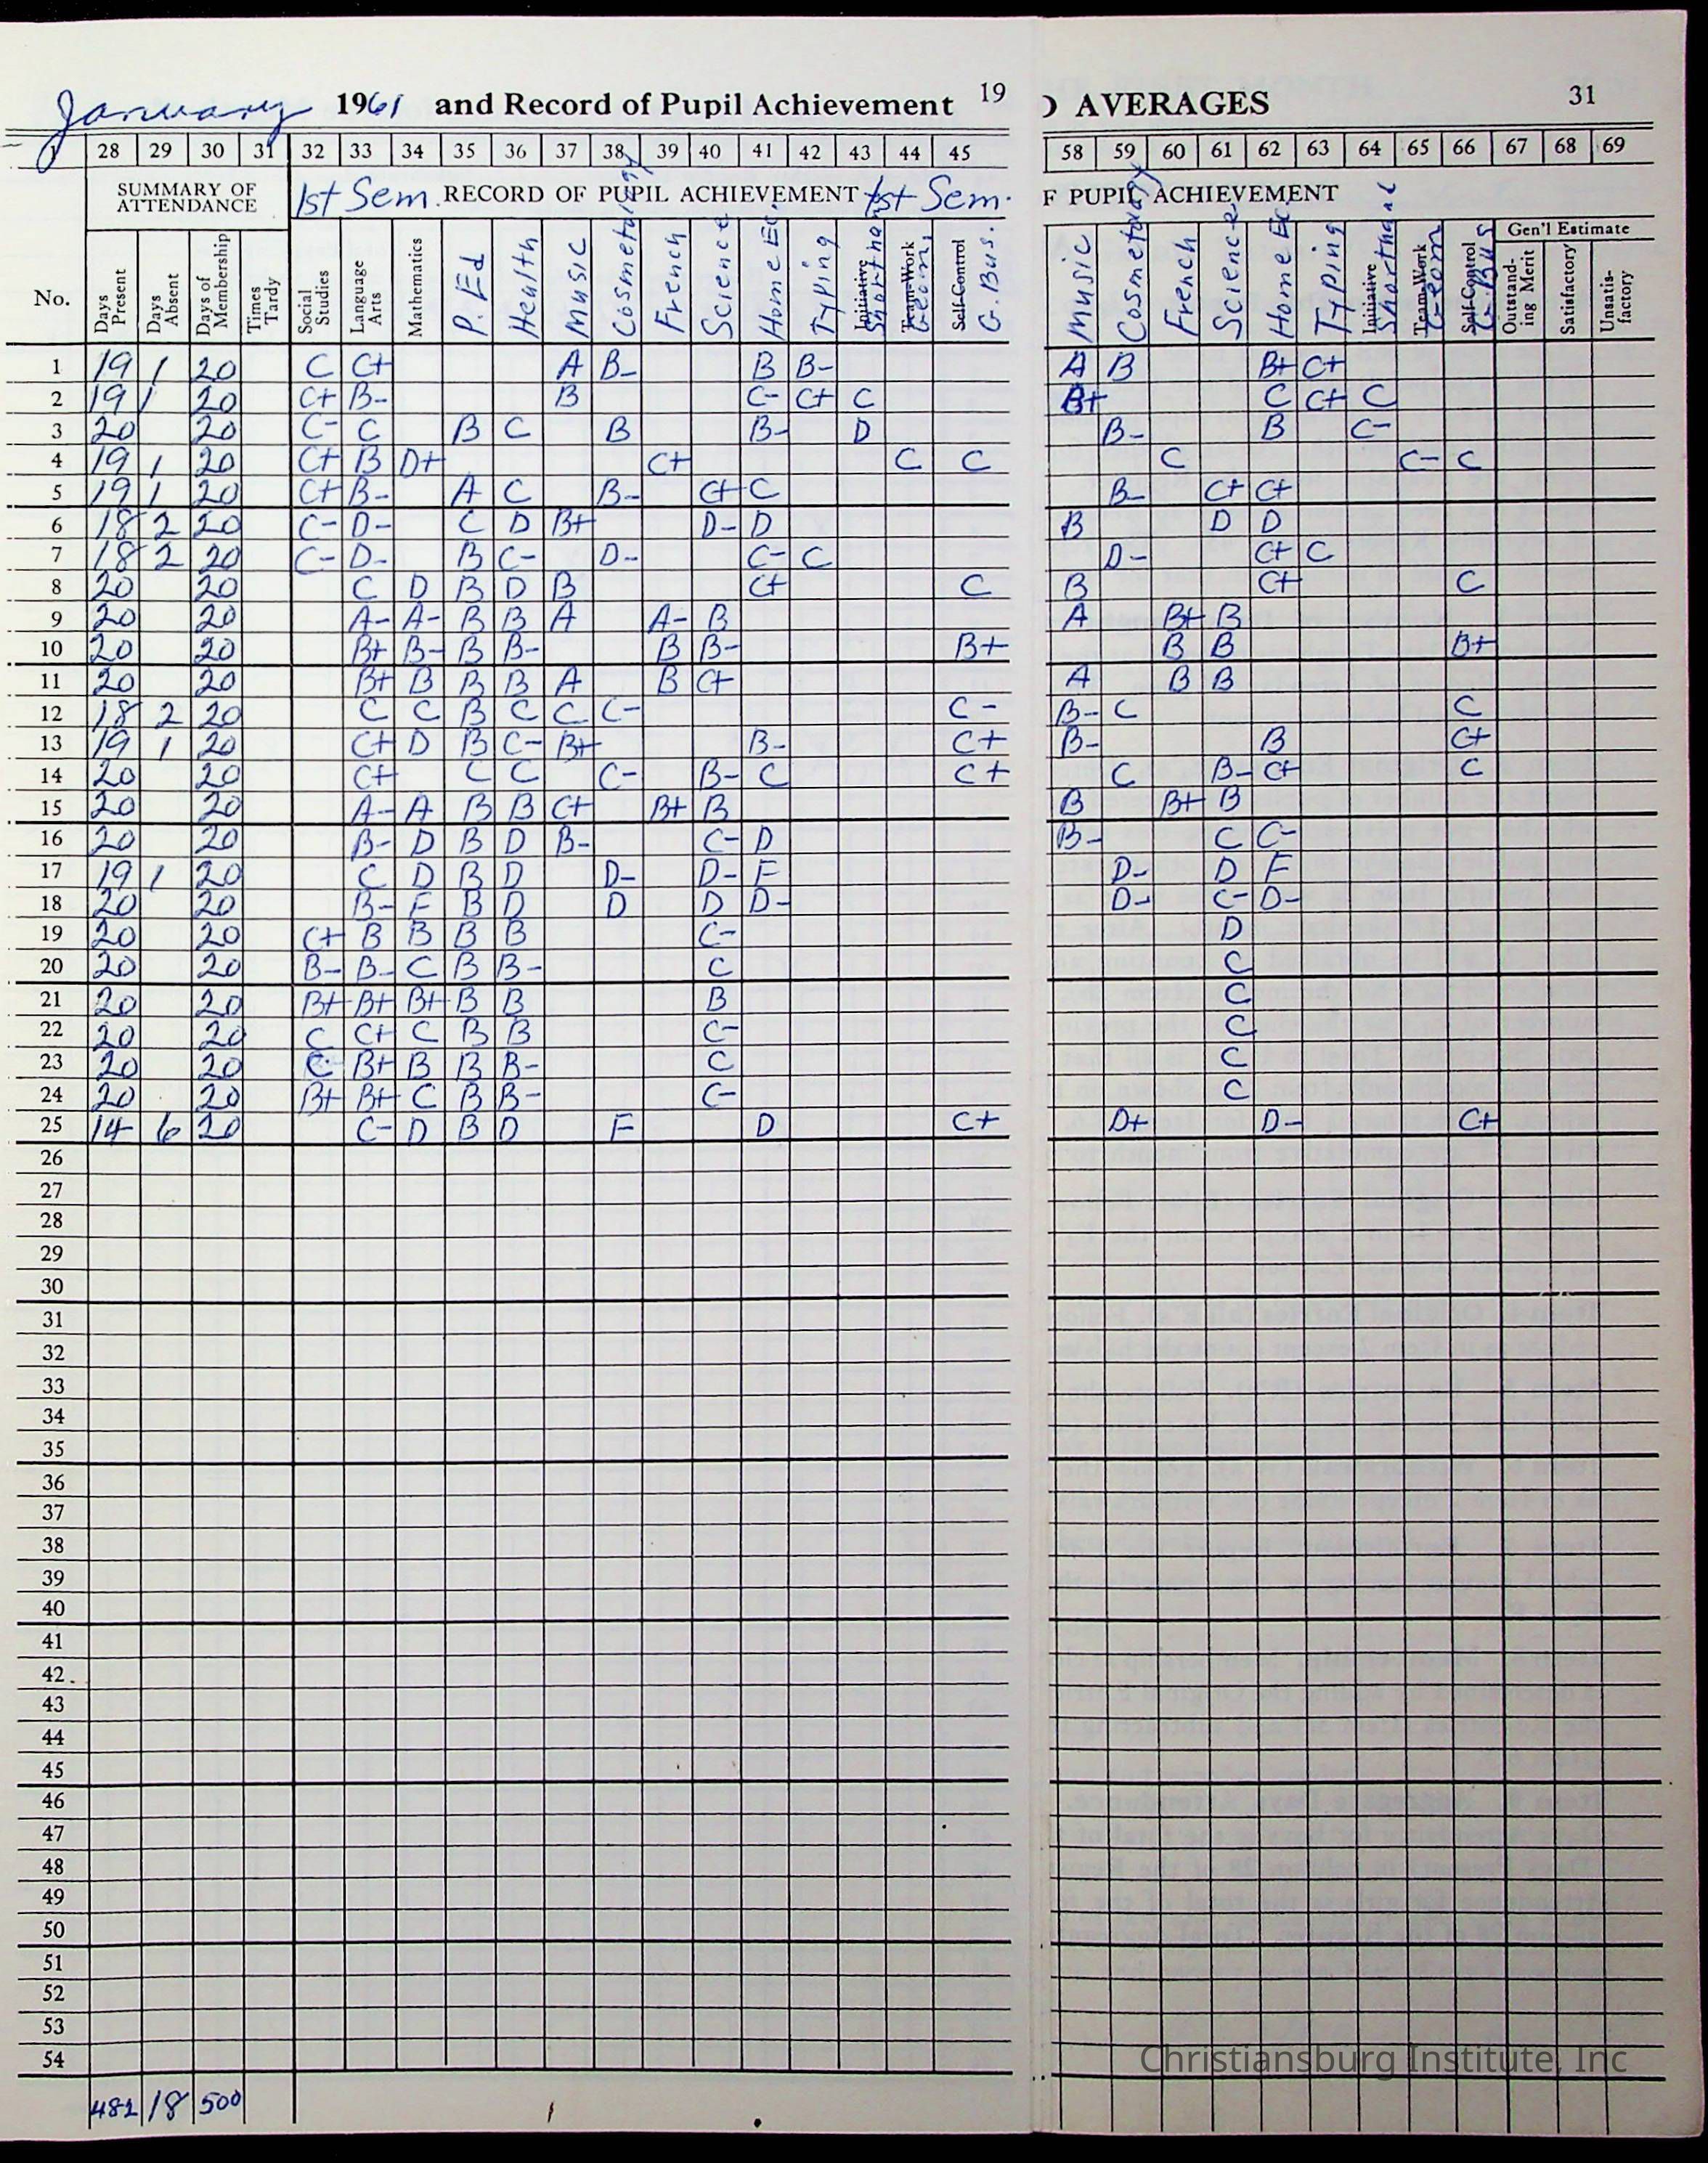 January 1961 and Record of Pupil Achievement 19
28 29 30 31 32 33 34 35 36 37 38 39 40 41 42 43 44 45
SUMMARY OF ATTENDANCE 1st Sem. RECORD OF PUPIL ACHIEVEMENT 1st Sem.
No. Days Present Days Absent Days of Membership Times Tardy Social Studies Language Arts Mathematics P. Ed Health Music Cosmetology French Science Home Ec. Typing Initiative Shorthand Team-Work Geom. Self-Control G. Bus.
1 19 1 20 C C+ A B- B B-
2 19 1 20 C+ B- B C- C+ C
3 20 20 C- C B C B B- D
4 19 1 20 C+ B D+ C+ C C
5 19 1 20 C+ B- A C B- C+ C
6 18 2 20 C- D- C D B+ D- D
7 18 2 20 C- D- B C- D- C- C
8 20 20 C D B D B C+ C
9 20 20 A- A- B B A A- B
10 20 20 B+ B- B B- B B- B+
11 20 20 B+ B B B A B C+
12 18 2 20 C C B C C C- C-
13 19 1 20 C+ D B C- B+ B- C+
14 20 20 C+ C C C- B- C C+
15 20 20 A- A B B C+ B+ B
16 20 20 B- D B D B- C- D
17 19 1 20 C D B D D- D- F
18 20 20 B- F B D D D D-
19 20 20 C+ B B B B C-
20 20 20 B- B- C B B- C
21 20 20 B+ B+ B+ B B B
22 20 20 C C+ C B B C-
23 20 20 C- B+ B B B- C
24 20 20 B+ B+ C B B- C-
25 14 6 20 C- D B D F D C+
26
27
28
29
30
31
32
33
34
35
36
37
38
39
40
41
42
43
44
45
46
47
48
49
50
51
52
53
54
482 18 500
D AVERAGES 31
58 59 60 61 62 63 64 65 66 67 68 69
F PUPIL ACHIEVEMENT
Gen'l Estimate
Music Cosmetology French Science Home Ec Typing Initiative Shorthand Team-Work Geom Self-Control G. Bus Outstanding Merit Satisfactory Unsatisfactory
A B B+ C+
B+ C C+ C
B- B C-
C C- C
B- C+ C+
B D D
D- C+ C
B C+ C
A B+ B
B B B+
A B B
B- C C
B- B C+
C B- C+ C
B B+ B
B- C C-
D- D F
D- C- D-
D
C
C
C
C
C
D+ D- C+
Christiansburg Institute, Inc